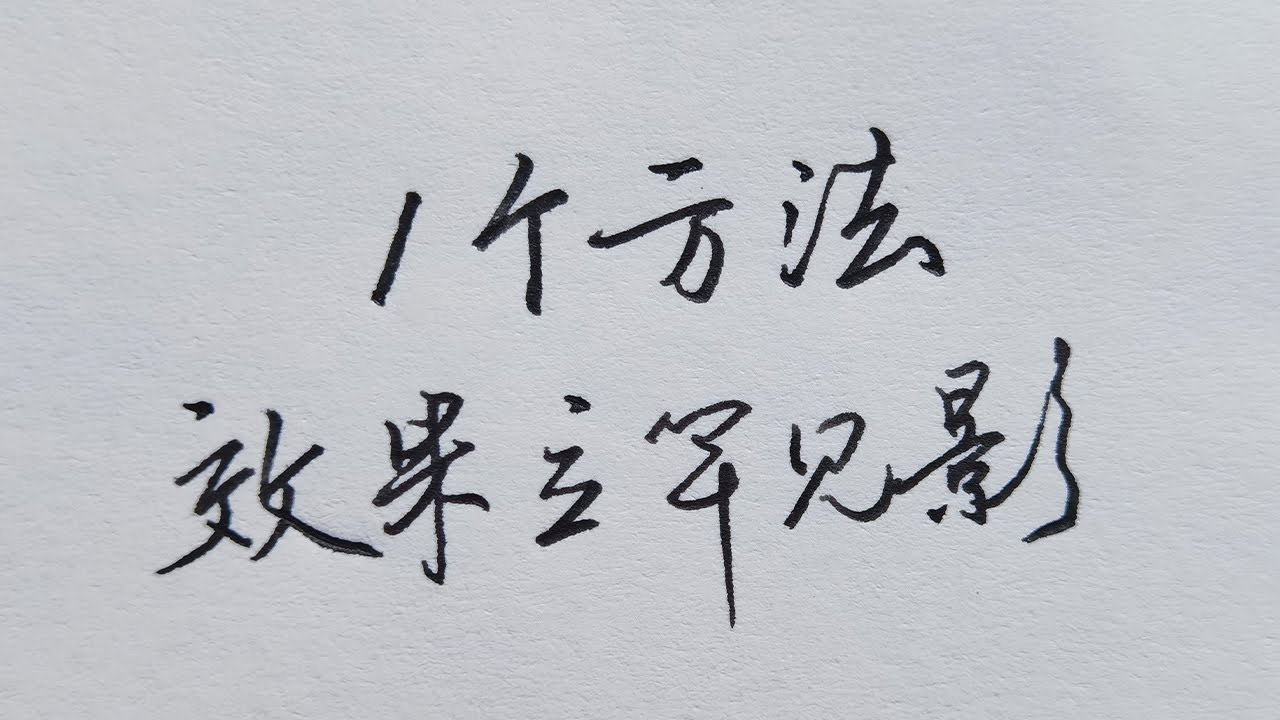 1个方法
效果立竿见影